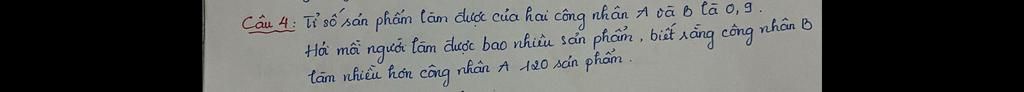 Câu 4: Tỉ số sản phẩm làm được của hai công nhân A và B là 0,9.
Hỏi mỗi người làm được bao nhiêu sản phẩm, biết rằng công nhân B
làm nhiều hơn công nhân A 120 sản phẩm.